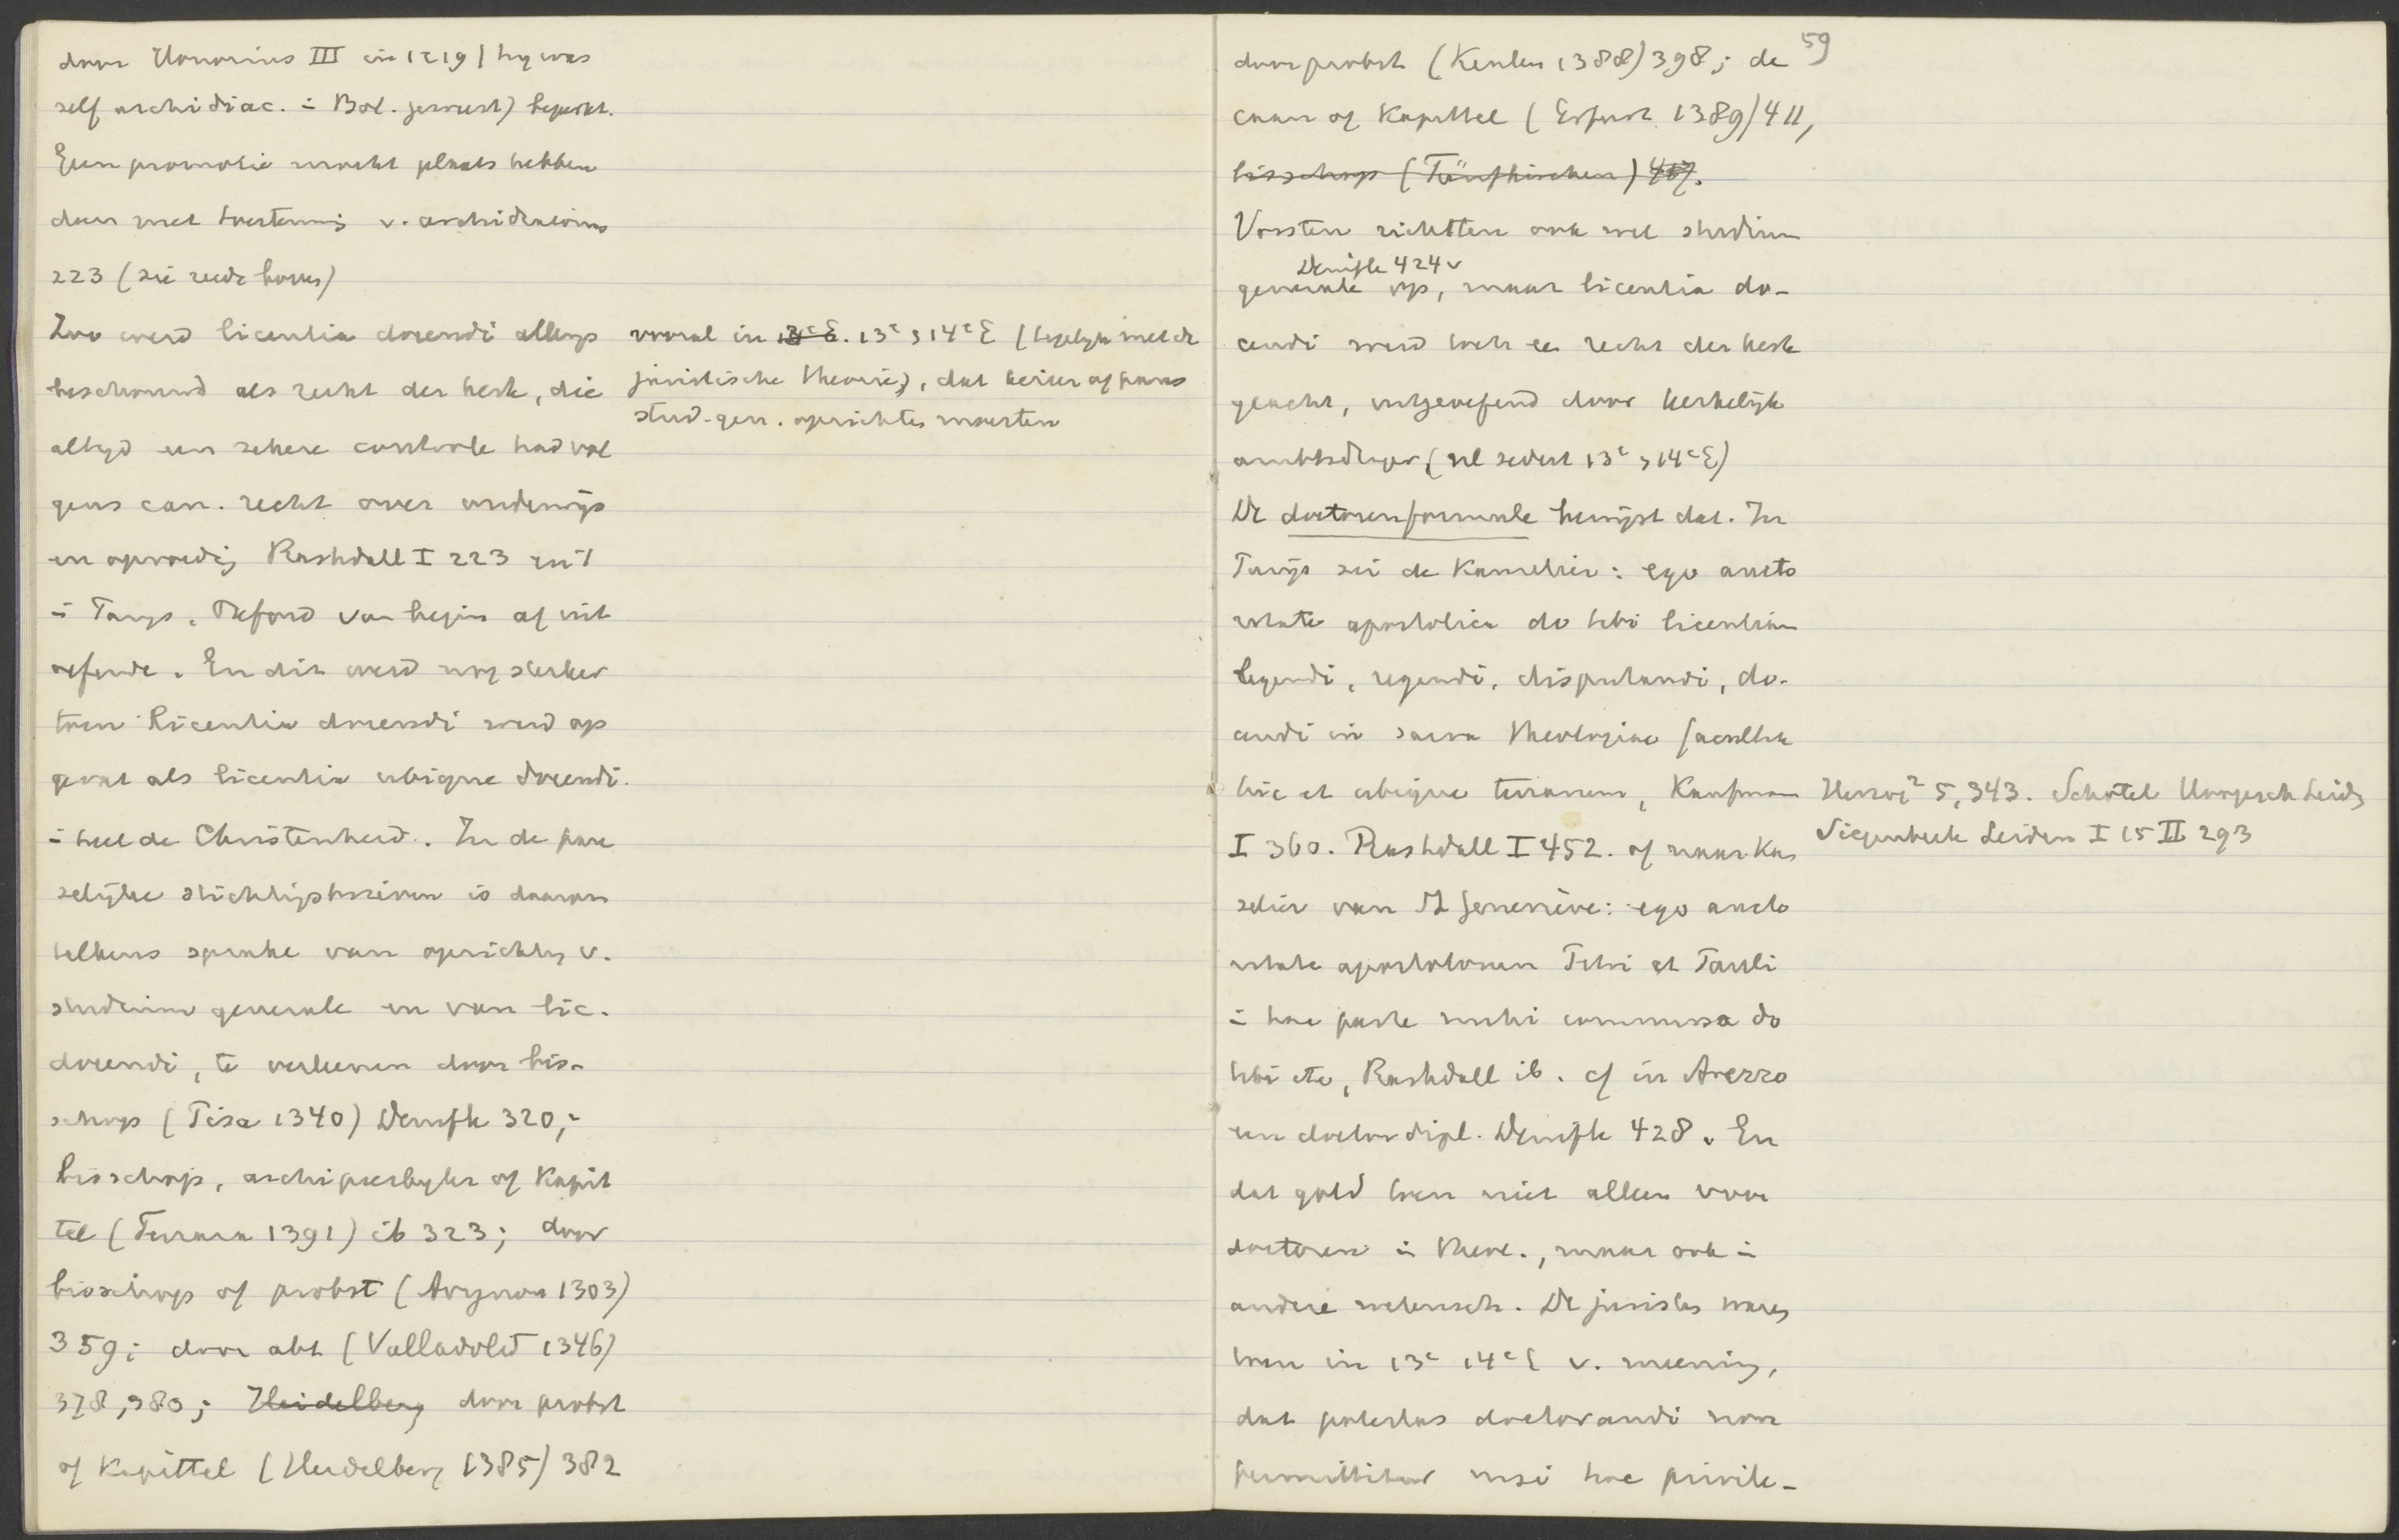 door Honorius III in 1219 (hy was
self archidiac. i Bol. geweest) beperkt.
Geen promotie mocht plaats hebben
dan met toestemmg v. archidiaconus
223 (zie reeds boven)
Zoo werd licentia docendi allengs
beschouwd als recht der kerk, die
altyd een zekere controle had vol
gens can. recht over onderwijs
en opvoedig Rashdall I 223 en t
i Parys. Oxford van begin af uit
oefende. En dit werd nog sterker
toen licentia docendi werd op
gevat als licentia ubique docendi.
i heel de Christenheid. In de pau
selijke stichtigsbrieven is daarom
telkens sprake van oprichtg v.
studium generale en van lic.
docendi, te verleenen door bis-
schop (Pisa 1340) Denifle 320,
bisschop, archipresbyter of Kapit
tel (Ferrara 1391) ib 323; door
bisschop of probst (Avignon 1303)
359; door abt (Valladolid 1346)
378, 380; Heidelberg door probst
of Kapittel (Heidelberg 1385) 382
vooral in 13e E. 13e, 14e E (tegelyk met de
juristische theorie), dat keizer of paus
stud. gen. oprichten moesten
59
door probst (Keulen 1388) 398; de
caan of Kapittel (Erfurt 1389) 411,
bisschop (Fünfkirchen) 417.
Vorsten richtten ook wel studium
Denifle 424v
generale op, maar licentia do-
cendi werd toch een recht der kerk
geacht, uitgeoefend door kerkelijk
ambtsdrager (nl sedert 13e, 14e E)
De doctorenformule bewijst dat. In
Parijs zei de Kanselier: ego aucto
ritate apostolica do tibi licentiam
legendi, regendi, disputandi, do-
cendi in sacra theologiae facultate
hic et ubique terrarum, Kaufmann
I 360. Rashdall I 452. of naar Kan
selier van St Geneviève: ego aucto
ritate apostolorum Petri et Pauli
i hac parte mihi commissa do
tibi etc, Rashdall ib. cf in Arezzo
een doctor dipl. Denifle 428. En
dat gold toen niet alleen voor
doctoren i theol., maar ook i
andere wetensch. De juristen waren
toen in 13e 14e E v. meening,
dat potestas doctorandi non
permittitur nisi hoc privile-
Herzog² 5, 343. Schotel Hoogesch Leiden
Siegenbeek Leiden I 15 II 293